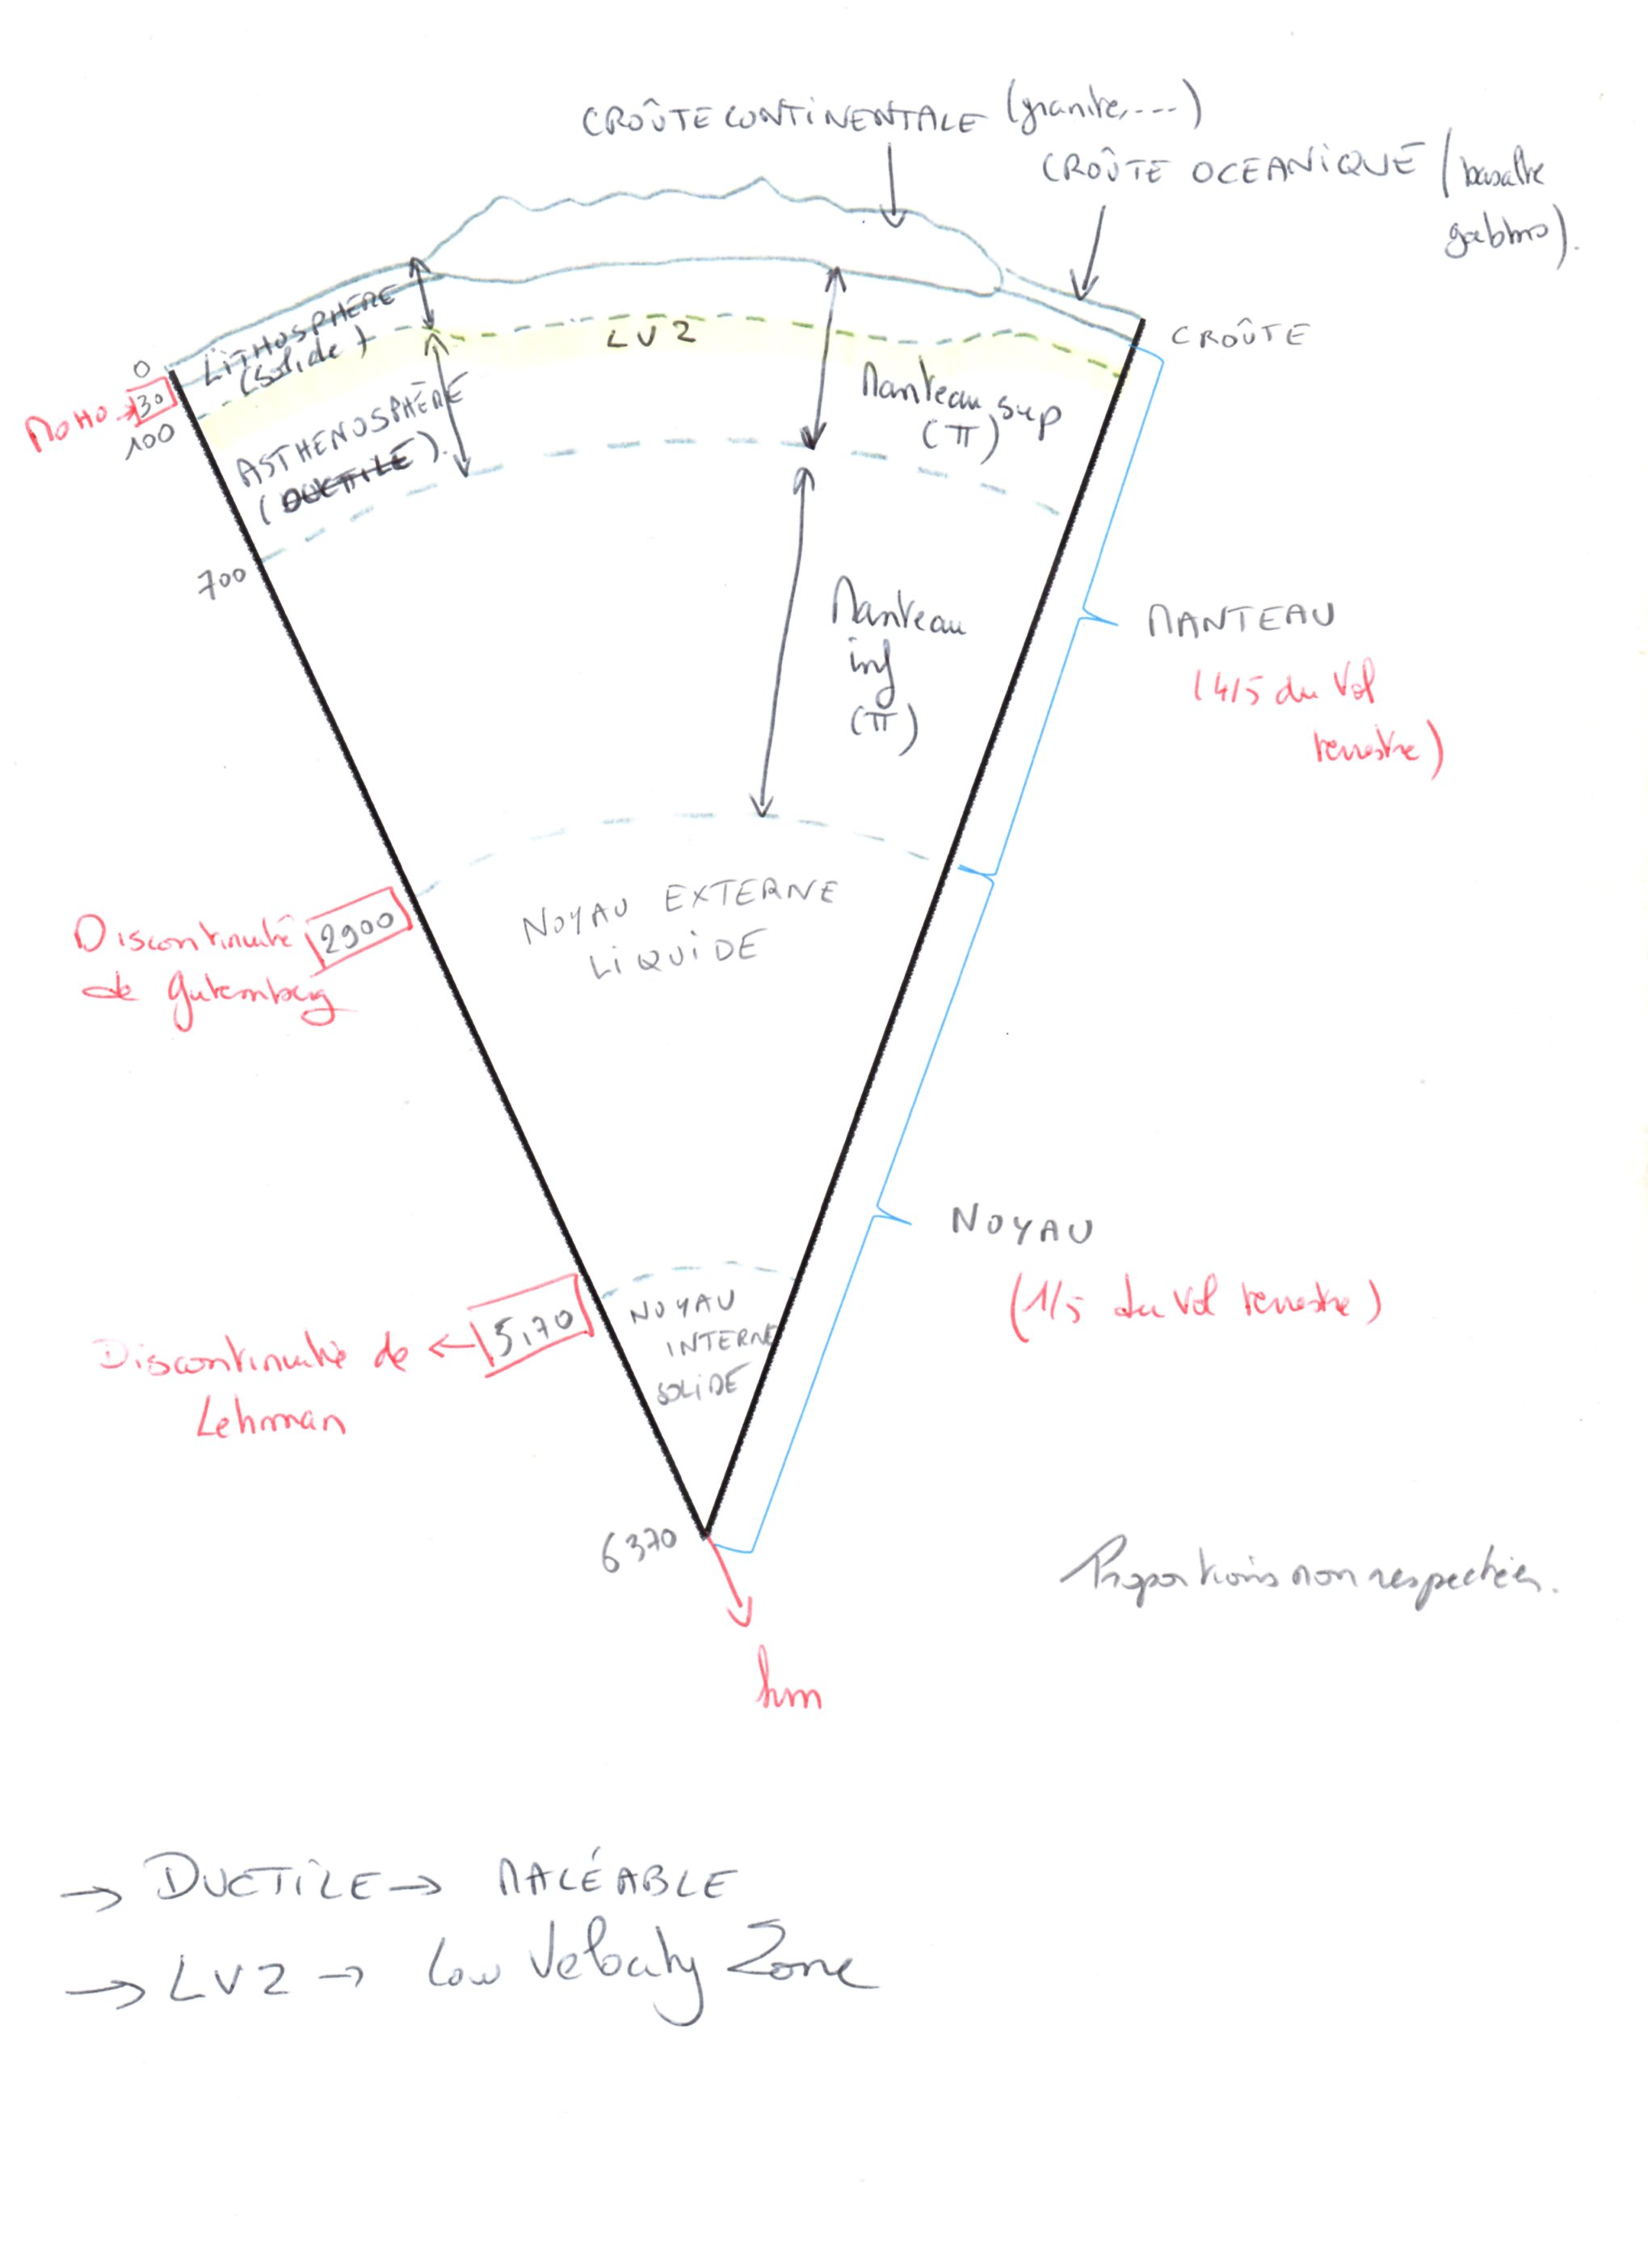 CROÛTE CONTINENTALE (granite,----)
CROÛTE OCEANIQUE (basalte
gabbro).
CROÛTE
LITHOSPHÈRE
(Solide)
LVZ
0
MOHO → 30
100
ASTHENOSPHÈRE
(DUCTILE).
Manteau sup
(π)
700
Manteau
inf
(π)
MANTEAU
(4/5 du Vol
terrestre)
Discontinuité 2900
de Gutemberg
NOYAU EXTERNE
LIQUIDE
NOYAU
(1/5 du Vol terrestre)
Discontinuité de ← 5170
Lehman
NOYAU
INTERNE
SOLIDE
6370
km
Proportions non respectées.
→ DUCTILE → MALÉABLE
→ LVZ → Low Velocity Zone